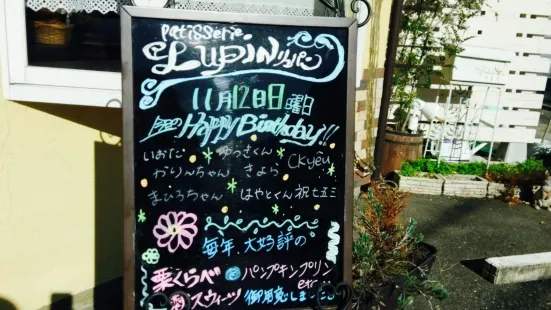 Patisserie
LUPIN リュパン
11月12日日曜日
Happy Birthday!!
いおた ゆうきくん Ckyêu
かりんちゃん きよら
まひろちゃん はやとくん祝七五三
毎年、大好評の
栗くらべ と パンプキンプリン
etc
スウィーツ 御用意しました